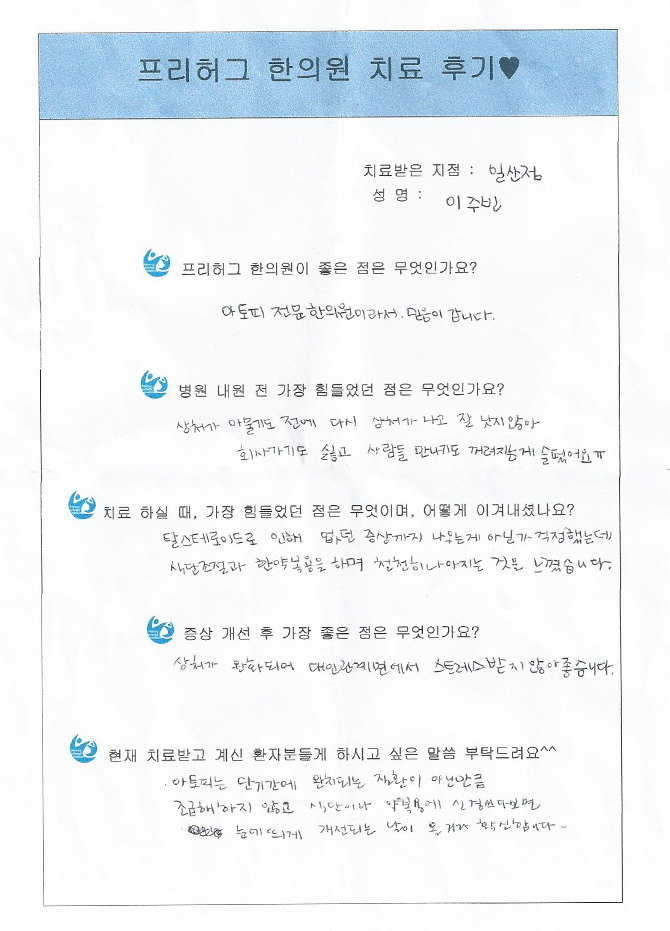 프리허그 한의원 치료 후기♥
치료받은 지점 : 일산점
성 명 : 이주빈
프리허그 한의원이 좋은 점은 무엇인가요?
아토피 전문한의원이라서. 믿음이 갑니다.
병원 내원 전 가장 힘들었던 점은 무엇인가요?
상처가 아물기도 전에 다시 상처가 나고 잘 낫지않아
회사가기도 싫고 사람들 만나기도 꺼려지는게 슬펐어요ㅠ
치료 하실 때, 가장 힘들었던 점은 무엇이며, 어떻게 이겨내셨나요?
탈스테로이드로 인해 없던 증상까지 나오는게 아닌가 걱정했는데
식단조절과 한약복용을 하며 천천히 나아지는 것을 느꼈습니다.
증상 개선 후 가장 좋은 점은 무엇인가요?
상처가 완화되어 대인관계면에서 스트레스받지 않아 좋습니다.
현재 치료받고 계신 환자분들게 하시고 싶은 말씀 부탁드려요^^
아토피는 단기간에 완치되는 질환이 아닌만큼
조급해하지 않고 식단이나 약복용에 신경쓰다보면
눈에 띄게 개선되는 날이 올거라 확신합니다.